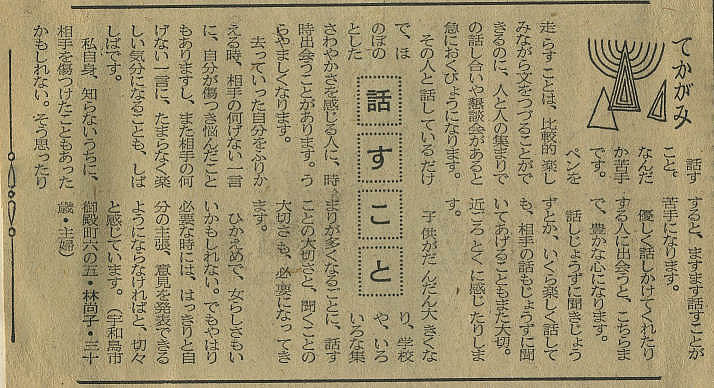 てかがみ
話すこと
話す
こと。
なんだ
か苦手
です。
ペンを
走らすことは、比較的楽し
みながら文をつづることがで
きるのに、人と人の集まりで
の話し合いや懇談会があると
急におくびょうになります。
その人と話しているだけ
で、ほ
のぼの
とした
さわやかさを感じる人に、時
時出会うことがあります。う
らやましくなります。
去っていった自分をふりか
える時、相手の何げない一言
に、自分が傷つき悩んだこと
もありますし、また相手の何
げない一言に、たまらなく楽
しい気分になることも、しば
しばです。
私自身、知らないうちに、
相手を傷つけたこともあった
かもしれない。そう思ったり
すると、ますます話すことが
苦手になります。
優しく話しかけてくれたり
する人に出会うと、こちらま
で、豊かな心になります。
話しじょうずに聞きじょう
ずとか、いくら楽しく話して
も、相手の話もじょうずに聞
いてあげることもまた大切。
近ごろとくに感じたりしま
す。
子供がだんだん大きくな
り、学校
や、いろ
いろな集
まりが多くなるごとに、話す
ことの大切さと、聞くことの
大切さも、必要になってき
ます。
ひかえめで、女らしさもい
いかもしれない。でもやはり
必要な時には、はっきりと自
分の主張、意見を発表できる
ようにならなければと、切々
と感じています。（宇和島市
御殿町六の五・林尚子・三十
歳・主婦）